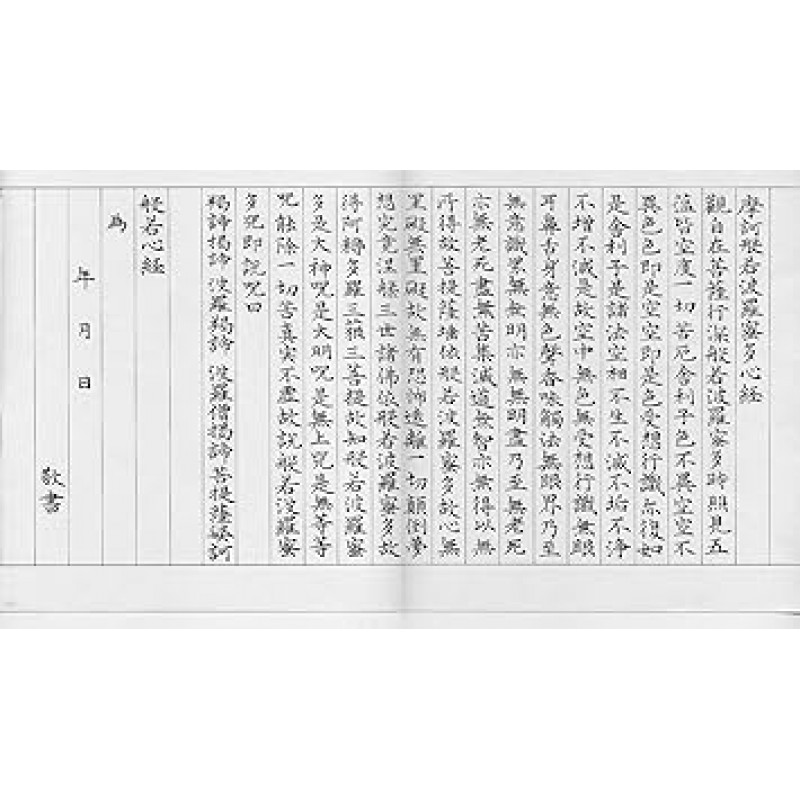 摩訶般若波羅蜜多心経
觀自在菩薩行深般若波羅蜜多時照見五
蘊皆空度一切苦厄舍利子色不異空空不
異色色即是空空即是色受想行識亦復如
是舍利子是諸法空相不生不滅不垢不浄
不增不減是故空中無色無受想行識無眼
耳鼻舌身意無色聲香味觸法無眼界乃至
無意識界無無明亦無無明盡乃至無老死
亦無老死盡無苦集滅道無智亦無得以無
所得故菩提薩埵依般若波羅蜜多故心無
罣礙無罣礙故無有恐怖遠離一切顛倒夢
想究竟涅槃三世諸佛依般若波羅蜜多故
得阿耨多羅三藐三菩提故知般若波羅蜜
多是大神呪是大明呪是無上呪是無等等
呪能除一切苦真実不虚故説般若波羅蜜
多呪即説呪曰
羯諦羯諦 波羅羯諦 波羅僧羯諦 菩提薩婆訶
般若心経
為
年 月 日
敬書